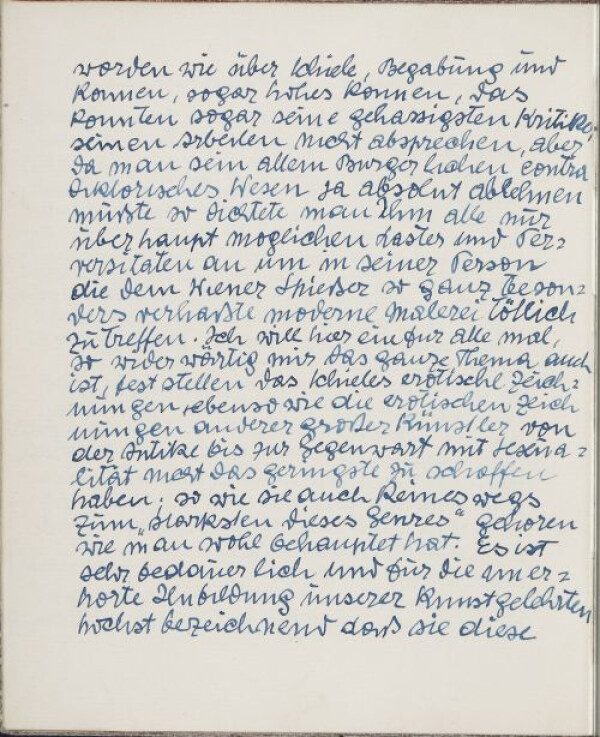 worden wie über Schiele, Begabung und
Konnen, sogar hohes Konnen, das
konnten sogar seine gehassigsten Kritiker
seinen Arbeiten nicht absprechen, aber
da man sein allem Burgerlichen contra
diktorisches Wesen ja absolut ablehnen
müsste so dichtete man Ihm alle nur
überhaupt moglichen Laster und Per=
versitäten an um in seiner Person
die dem Wiener Spießer so ganz beson=
ders verhaßte moderne Malerei tötlich
zu treffen. Ich will hier ein für alle mal,
so widerwärtig mir das ganze Thema auch
ist, fest stellen das Schieles erotische Zeich=
nungen, ebenso wie die erotischen Zeich
nungen anderer großer Künstler von
der Antike bis zur Gegenwart mit Sexua=
lität nicht das geringste zu schaffen
haben; so wie sie auch keineswegs
zum „starksten dieses Genres" gehoren
wie man wohl behauptet hat. Es ist
sehr bedauerlich und für die uner=
horte Unbildung unserer Kunstgelehrten
hochst bezeichnend dass sie diese